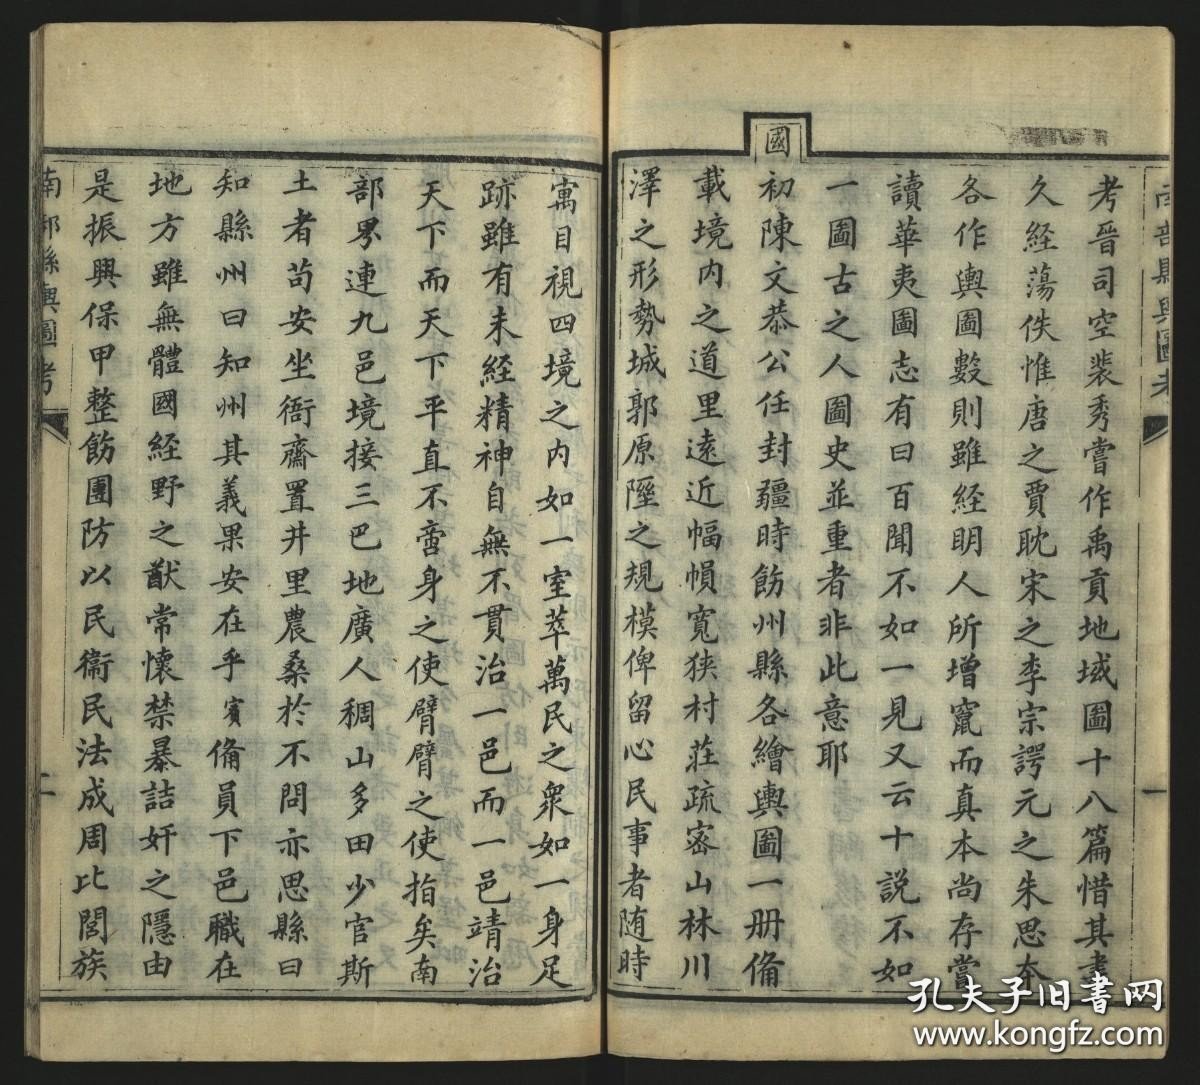 南部縣輿圖考
一
考晉司空裴秀嘗作禹貢地域圖十八篇惜其書
久經蕩佚惟唐之賈耽宋之李宗諤元之朱思本
各作輿圖數則雖經明人所增竄而真本尚存嘗
讀華夷圖志有曰百聞不如一見又云十說不如
一圖古之人圖史並重者非此意耶
國
初陳文恭公任封疆時飭州縣各繪輿圖一册備
載境内之道里遠近幅幀寬狹村莊疏密山林川
澤之形勢城郭原隰之規模俾留心民事者随時
寓目視四境之内如一室萃萬民之衆如一身足
跡雖有未經精神自無不貫治一邑而一邑靖治
天下而天下平直不啻身之使臂臂之使指矣南
部界連九邑境接三巴地廣人稠山多田少官斯
土者苟安坐衙齋置井里農桑於不問亦思縣曰
知縣州曰知州其義果安在乎賓備員下邑職在
地方雖無體國經野之猷常懷禁暴詰奸之隱由
是振興保甲整飭團防以民衞民法成周比閭族
南部縣輿圖考
二
孔夫子旧書网
www.kongfz.com